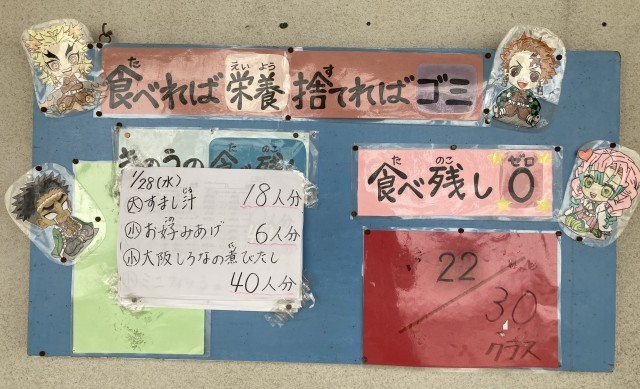 食べれば栄養 捨てればゴミ
きのうの食べ残し
1/28(水)
大 すまし汁 18人分
小 お好みあげ 6人分
小 大阪しろなの煮びたし
40人分
食べ残し0
22/30
クラス